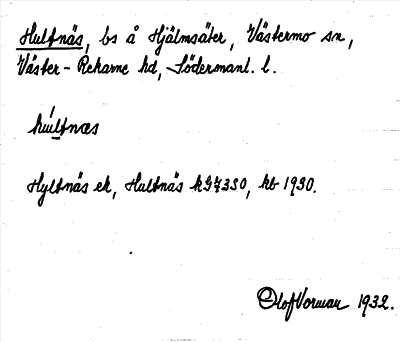 Hultnäs, bs å Hjälmsäter, Västermo sn,
Väster-Rekarne hd, Södermanl. l.
Hyltnäs ek, Hultnäs kGF350, kb 1930.
Olof Vorman 1932.